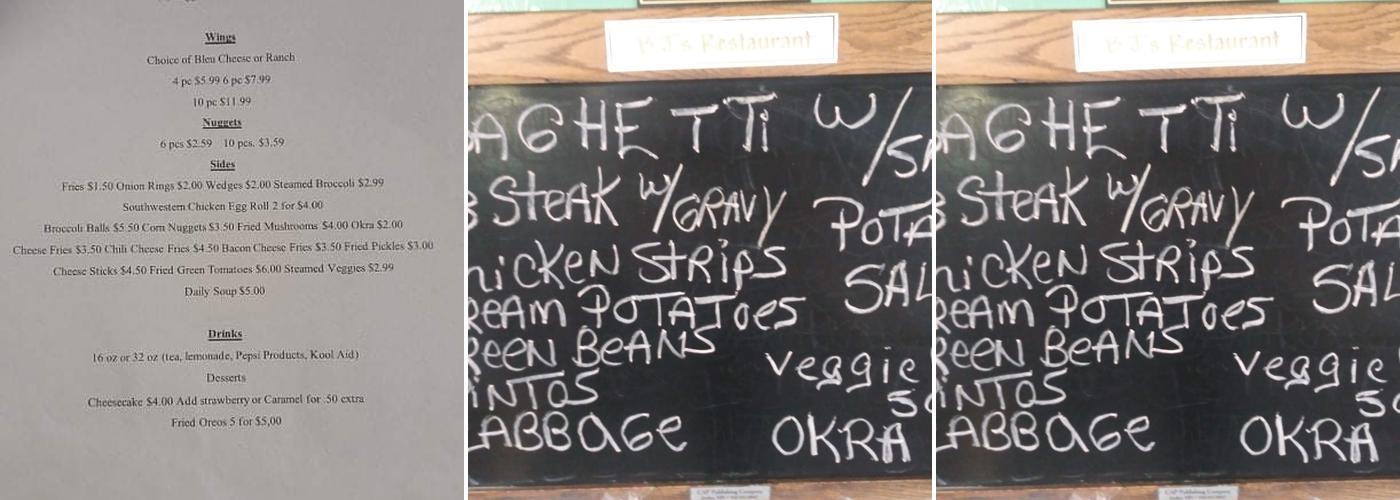 Wings
Choice of Bleu Cheese or Ranch
4 pc $5.99 6 pc $7.99
10 pc $11.99
Nuggets
6 pcs $2.59 10 pcs. $3.59
Sides
Fries $1.50 Onion Rings $2.00 Wedges $2.00 Steamed Broccoli $2.99
Southwestern Chicken Egg Roll 2 for $4.00
Broccoli Balls $5.50 Corn Nuggets $3.50 Fried Mushrooms $4.00 Okra $2.00
Cheese Fries $3.50 Chili Cheese Fries $4.50 Bacon Cheese Fries $3.50 Fried Pickles $3.00
Cheese Sticks $4.50 Fried Green Tomatoes $6.00 Steamed Veggies $2.99
Daily Soup $5.00
Drinks
16 oz or 32 oz (tea, lemonade, Pepsi Products, Kool Aid)
Desserts
Cheesecake $4.00 Add strawberry or Caramel for .50 extra
Fried Oreos 5 for $5,00
B J's Restaurant
AGHETTi W/SA
STEAK W/GRAVY
POTA
hiCKEN STRiPS
SAL
REAM POTATOES
REEN BEANS
Veggie
iNTOS
SO
ABBAGe
OKRA
CAP Publishing Company
B J's Restaurant
AGHETTi W/SA
STEAK W/GRAVY
POTA
hiCKEN STRiPS
SAL
REAM POTATOES
REEN BEANS
Veggie
iNTOS
SO
ABBAGe
OKRA
CAP Publishing Company